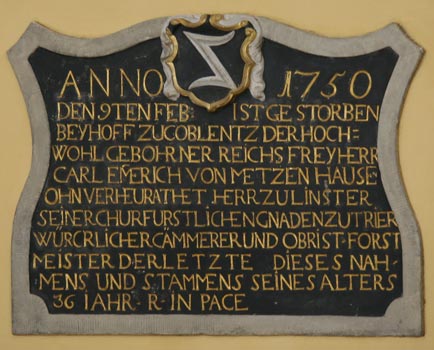 ANNO 1750
DEN 9TEN FEB: IST GESTORBEN
BEYHOFF ZU COBLENTZ DER HOCH=
WOHLGEBOHRNER REICHS FREYHERR
CARL EM̄ERICH VON METZENHAUSE
OHNVERHEURATHET HERR ZU LINSTER
SEINER CHURFURSTLICHEN GNADEN ZU TRIER
WÜRCRLICHER CÄMMERER UND OBRIST FORST
MEISTER DER LETZTE DIESES NAH-
MENS UND STAMMENS SEINES ALTERS
36 IAHR R· IN PACE